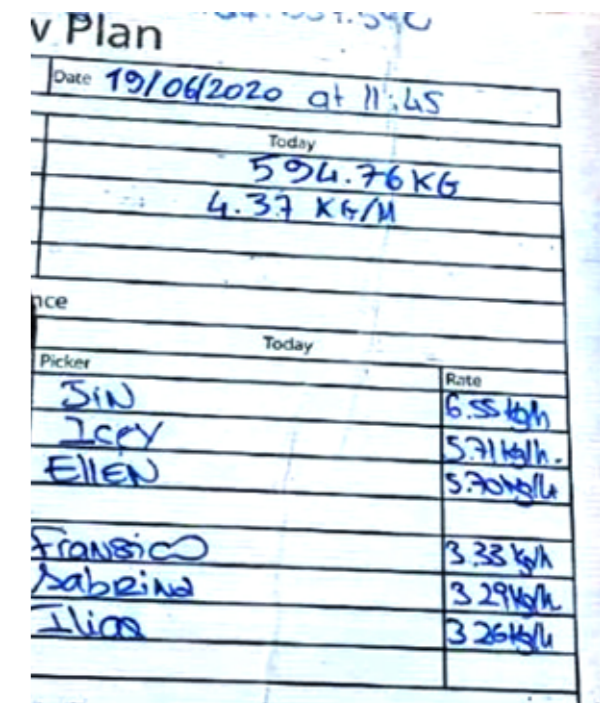 v Plan
Date 19/06/2020 at 11:45
Today
594.76 KG
4.37 KG/M
nce
Today
Picker Rate
JiN 6.55 kg/h
Icey 5.71 kg/h.
EllEN 5.70 kg/h
Fransico 3.33 kg/h
Sabrina 3.29 kg/h
Ilias 3.26 kg/h